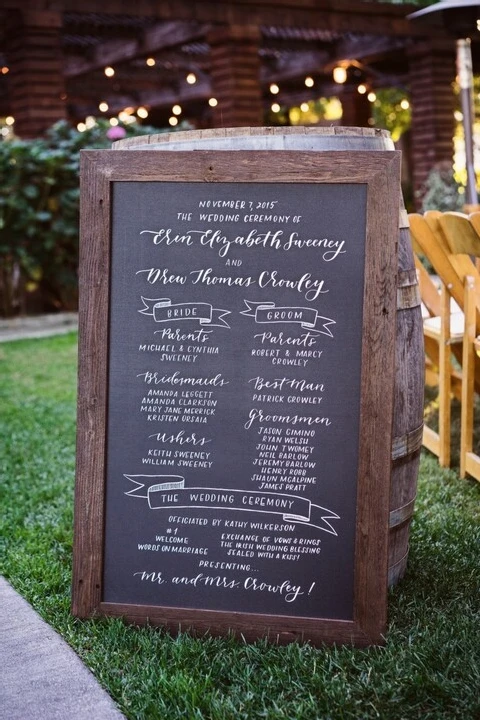 NOVEMBER 7, 2015
THE WEDDING CEREMONY OF
Erin Elizabeth Sweeney
AND
Drew Thomas Crowley
BRIDE
Parents
MICHAEL & CYNTHIA
SWEENEY
Bridesmaids
AMANDA LEGGETT
AMANDA CLARKSON
MARY JANE MERRICK
KRISTEN ORSAIA
Ushers
KEITH SWEENEY
WILLIAM SWEENEY
GROOM
Parents
ROBERT & MARCY
CROWLEY
Best Man
PATRICK CROWLEY
Groomsmen
JASON GIMINO
RYAN WELSH
JOHN TWOMEY
NEIL BARLOW
JEREMY BARLOW
HENRY ROBB
SHAUN MCALPINE
JAMES PRATT
THE WEDDING CEREMONY
OFFICIATED BY KATHY WILKERSON
WELCOME
WORDS ON MARRIAGE
EXCHANGE OF VOWS & RINGS
THE IRISH WEDDING BLESSING
SEALED WITH A KISS!
PRESENTING...
Mr. and Mrs Crowley!